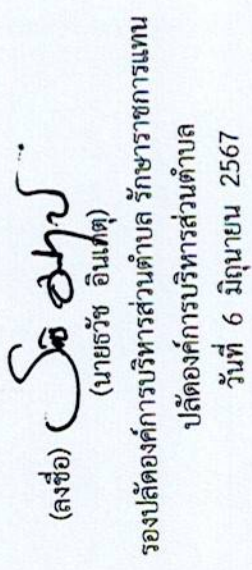 (ลงชื่อ)
(นายธวัช อินเกตุ)
รองปลัดองค์การบริหารส่วนตำบล รักษาราชการแทน
ปลัดองค์การบริหารส่วนตำบล
วันที่ 6 มิถุนายน 2567